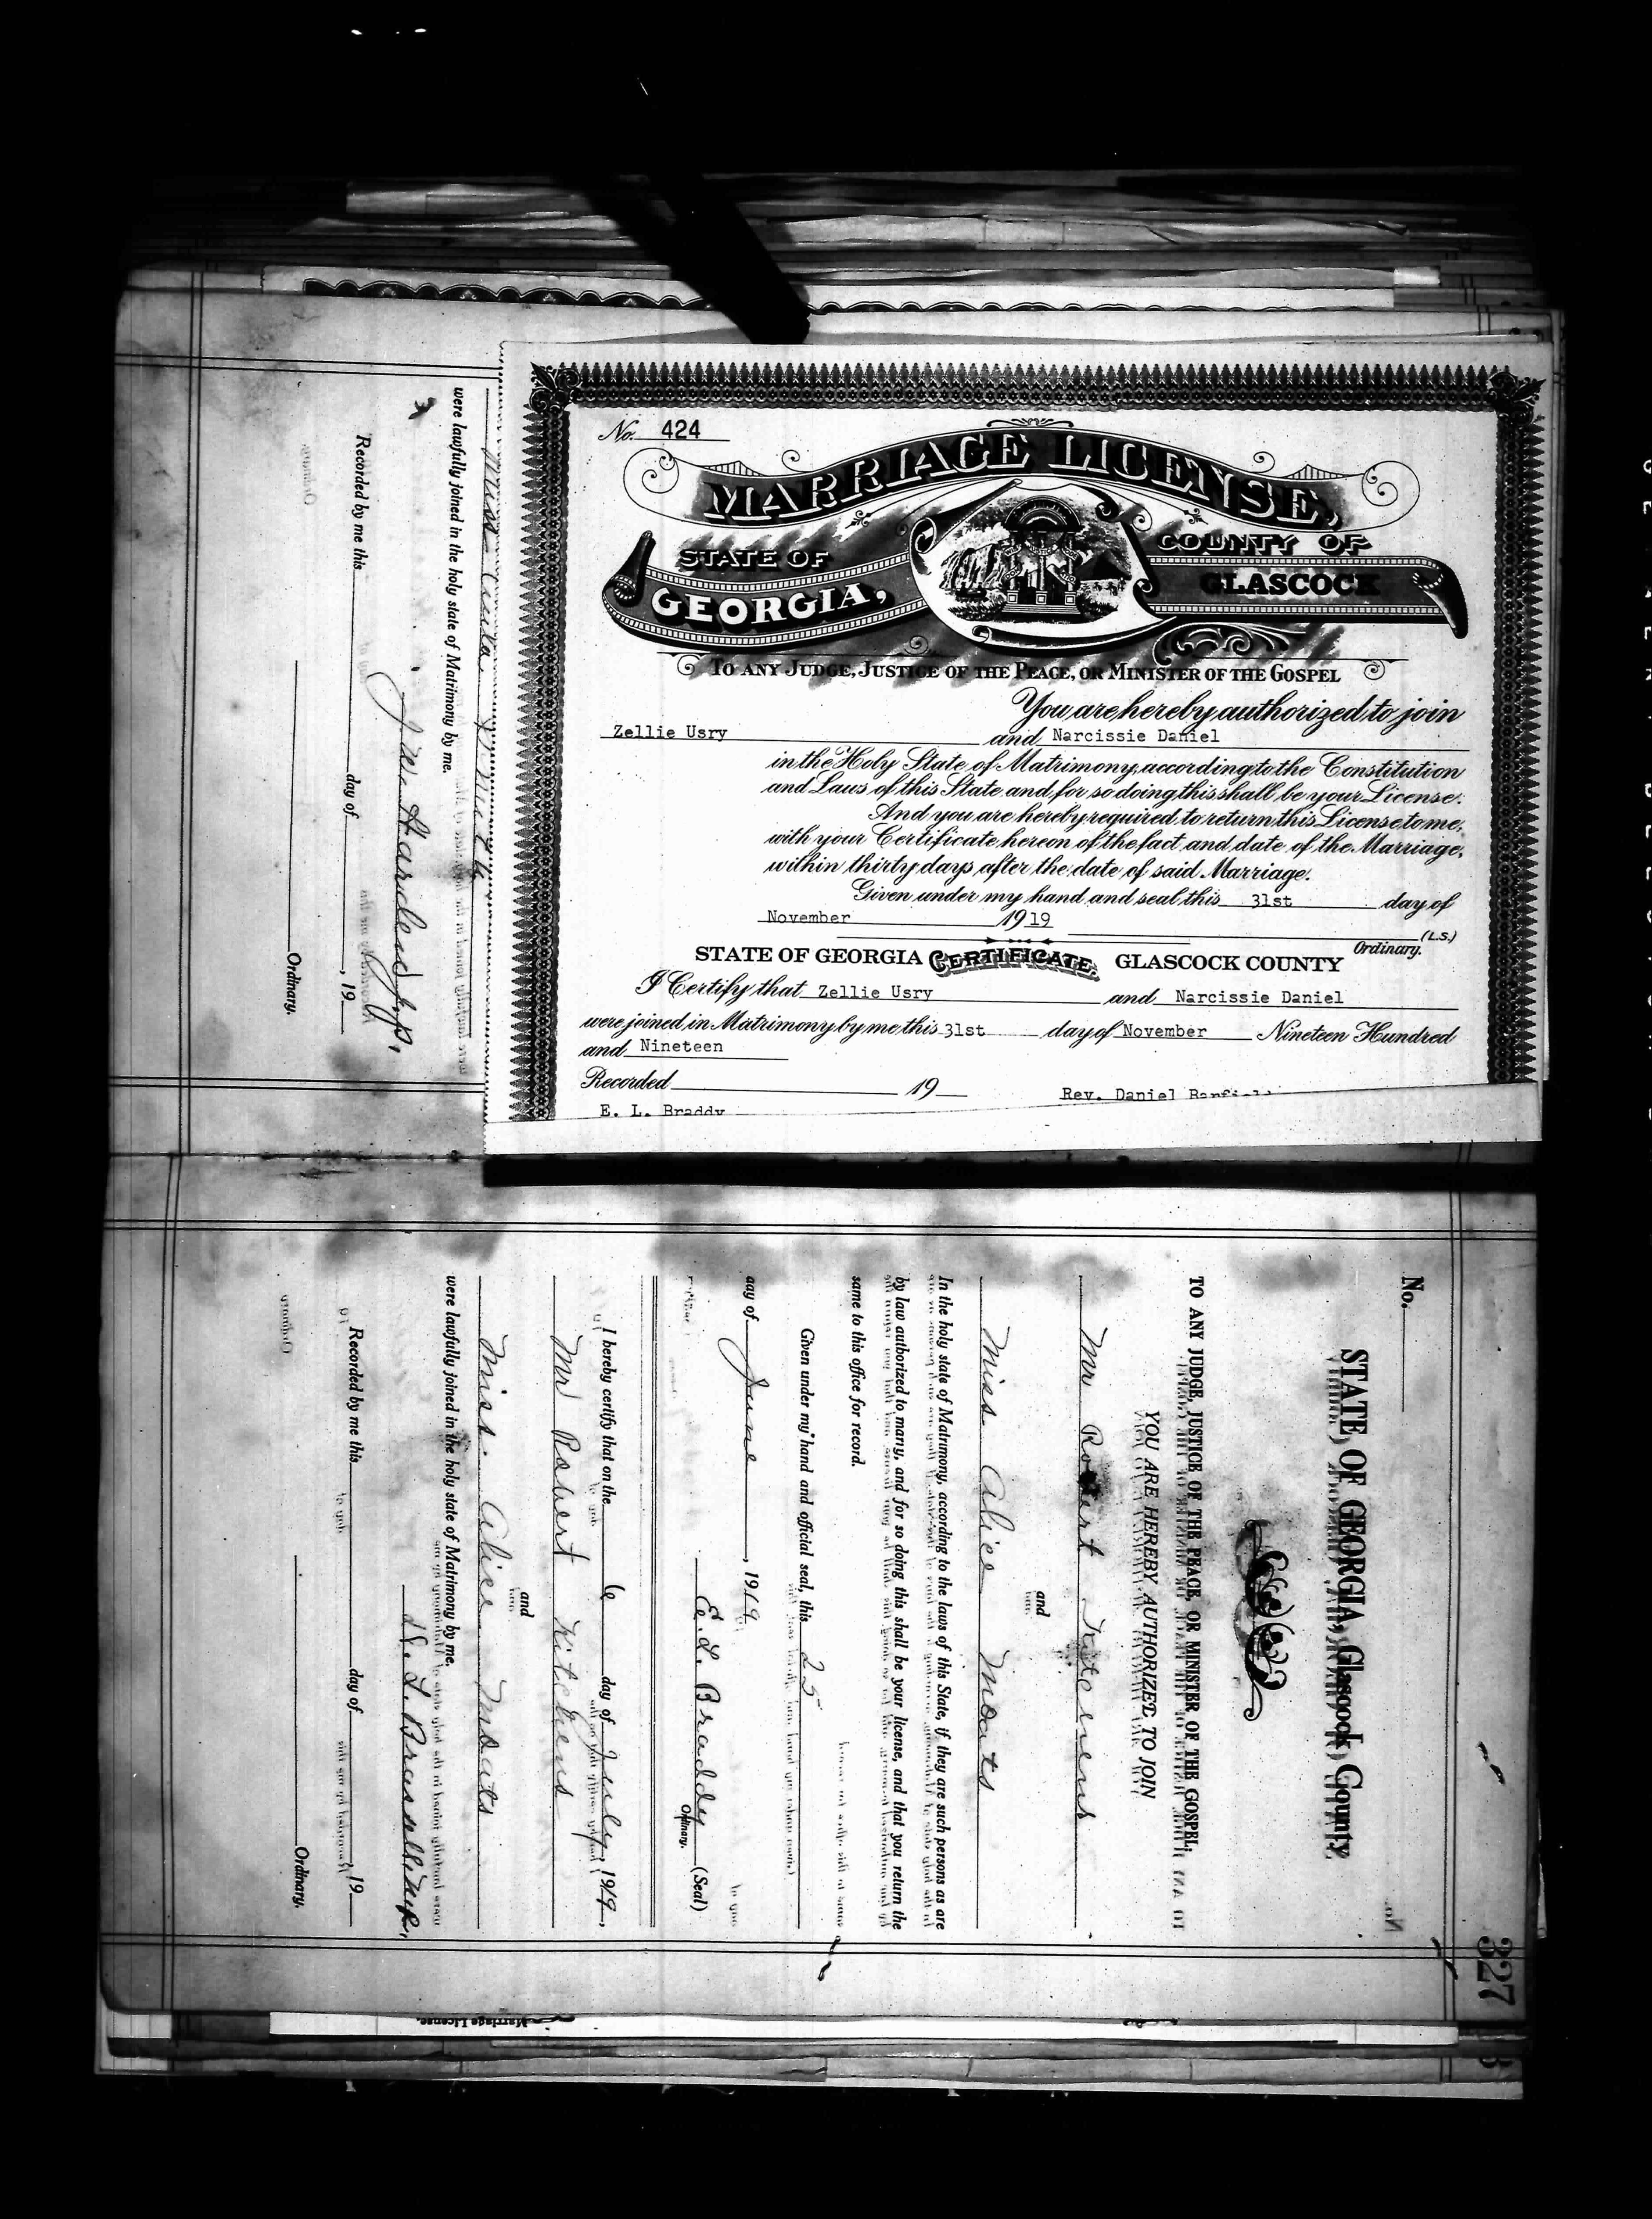 No. 424
MARRIAGE LICENSE,
STATE OF
GEORGIA,
COUNTY OF
GLASCOCK
TO ANY JUDGE, JUSTICE OF THE PEACE, OR MINISTER OF THE GOSPEL
You are hereby authorized to join
Zellie Usry and Narcissie Daniel
in the Holy State of Matrimony, according to the Constitution
and Laws of this State and, for so doing this shall be your License.
And you are hereby required, to return this License to me,
with your Certificate hereon of the fact and date of the Marriage,
within thirty days after the date of said Marriage.
Given under my hand and seal this 31st day of
November 1919
(L.S.)
Ordinary.
STATE OF GEORGIA CERTIFICATE. GLASCOCK COUNTY
I Certify that Zellie Usry and Narcissie Daniel
were joined in Matrimony by me this 31st day of November Nineteen Hundred
and Nineteen
Recorded 19
Rev. Daniel
E. L. Braddy
Miss
were lawfully joined in the holy state of Matrimony by me.
J. W. Harden J.P.
Recorded by me this day of , 19
Ordinary.
327
No.
STATE OF GEORGIA, Glascock County
TO ANY JUDGE, JUSTICE OF THE PEACE, OR MINISTER OF THE GOSPEL:
YOU ARE HEREBY AUTHORIZED TO JOIN
Mr Robert Kitchens
and
Miss Alice Moats
In the holy state of Matrimony, according to the laws of this State, if they are such persons as are
by law authorized to marry, and for so doing this shall be your license, and that you return the
same to this office for record.
Given under my hand and official seal, this 25
day of June, 1919
E. L. Braddy (Seal)
Ordinary.
I hereby certify that on the 6 day of July, 1919,
Mr Robert Kitchens
and
Miss. Alice Moats
were lawfully joined in the holy state of Matrimony by me.
Recorded by me this day of , 19
Ordinary.
Marriage License.